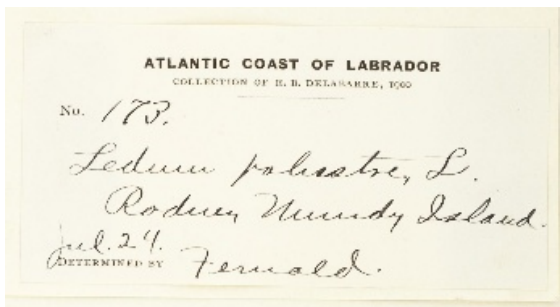 ATLANTIC COAST OF LABRADOR
COLLECTION OF E. B. DELABARRE, 1900
No. 173.
Ledum palustre, L.
Rodney Mundy Island.
Jul. 24.
DETERMINED BY Fernald.